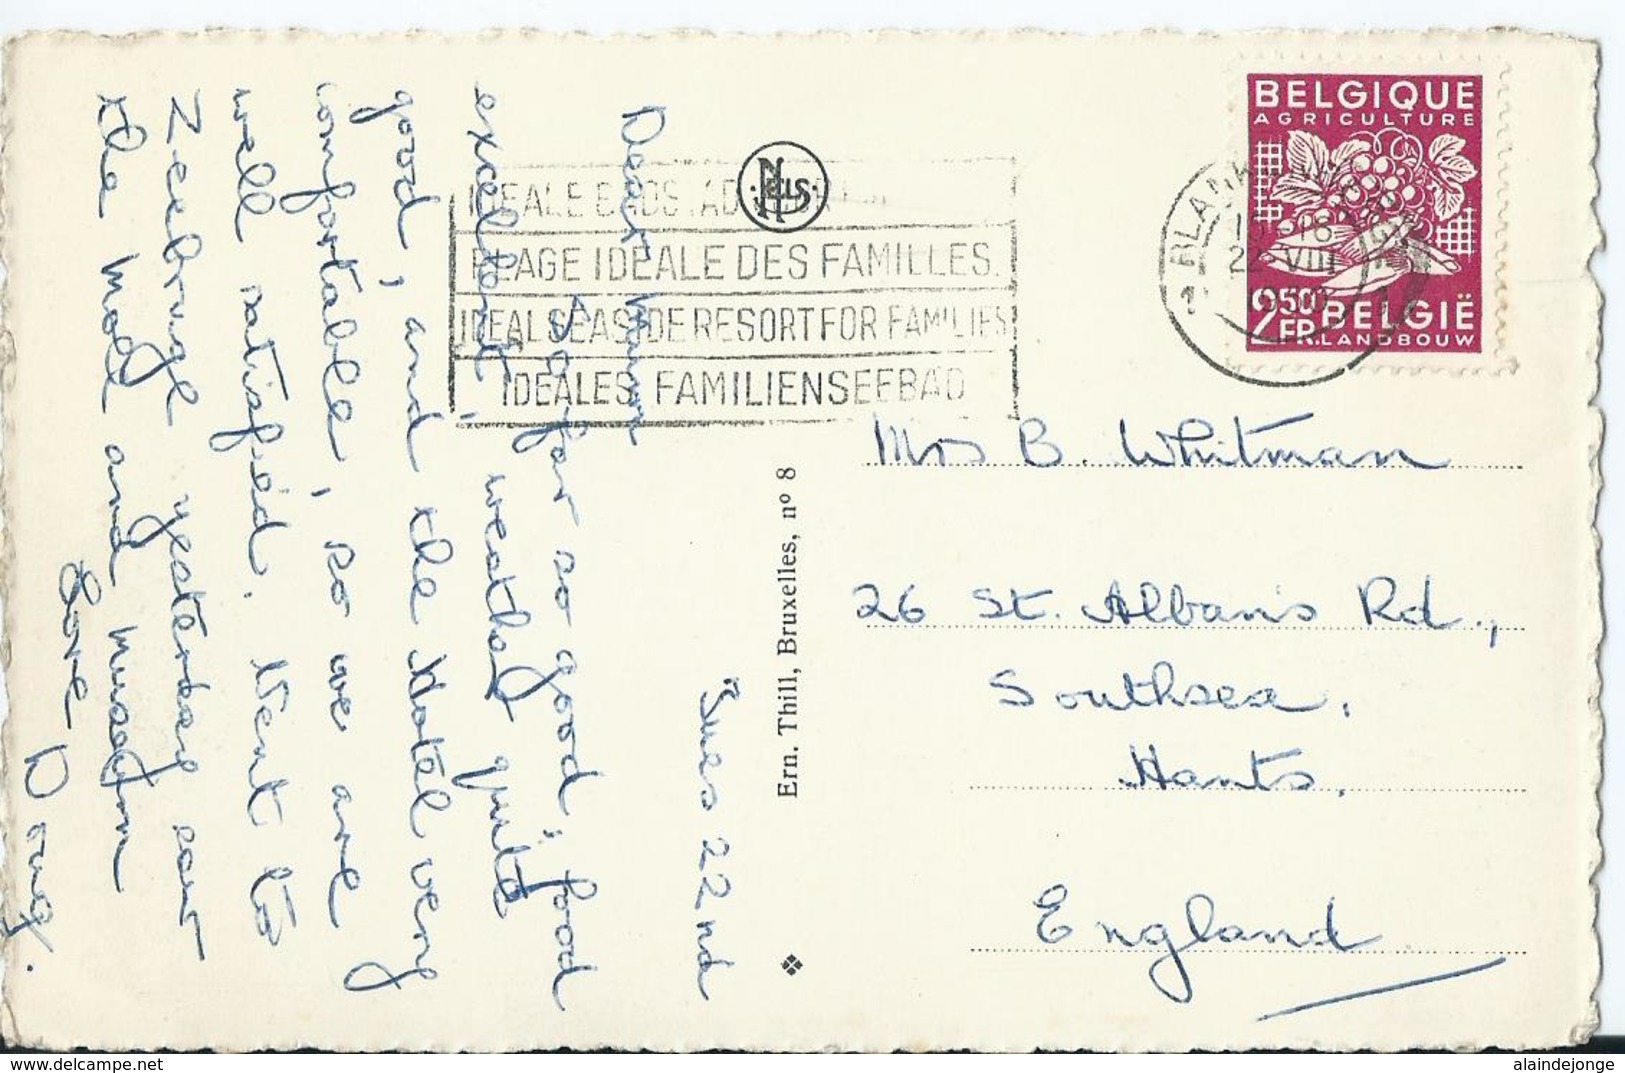 Tues 22nd
Dear Mum
So far so good, food
excellent, weather quite
good, and the Hotel very
comfortable, so we are
well satisfied. Went to
Zeebruge yesterday saw
the Mole and museum
Love Doug.
NELS
IDEALE BADSTAD
PLAGE IDEALE DES FAMILLES.
IDEAL SEASIDE RESORT FOR FAMILIES
IDEALES FAMILIENSEEBAD
Ern. Thill, Bruxelles, nº 8
BELGIQUE
AGRICULTURE
2 50 FR.
BELGIË
LANDBOUW
BLANKENBERGE
VIII
Mrs B. Whitman
26 St. Alban's Rd.,
Southsea,
Hants.
England
www.delcampe.net
alaindejonge